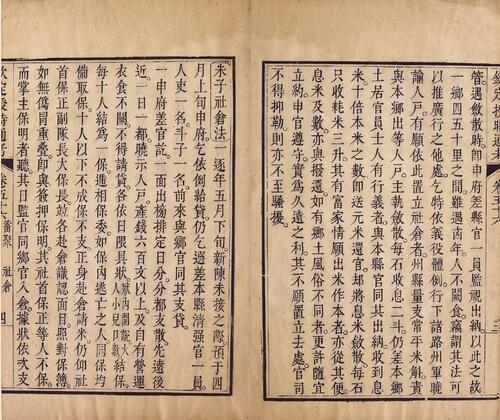 欽定授時通考 卷五十六 三
管遇斂散時卽申府差縣官一員監視出納以此之故
一鄉四五十里之間雖遇凶年人不闕食竊謂其法可
以推廣行之他處乞特依義役體例行下諸路州軍曉
諭人戶有願依此置立社倉者州縣量支常平米斛責
與本鄉出等人戶主執斂散每石收息二斗仍差本鄉
土居官員士人有行義者與本縣官同其出納收到息
米十倍本米之數卽送元米還官却將息米斂散每石
只收耗米三升其有富家情願出米作本者亦從其便
息米及數亦與撥還如有鄉土風俗不同者更許隨宜
立約申官遵守實爲久遠之利其不願置立去處官司
不得抑勒則亦不至騷擾
朱子社倉法一逐年五月下旬新陳未接之際預于四
月上旬申府乞依例給貸仍乞選差本縣淸强官一員
人吏一名斗子一名前來與鄉官同其支貸
一申府差官訖一面出榜排定日分分都支散先遠後
近一日一都曉示人戶產錢六百文以上及自有營運
衣食不闕不得請貸各依日限具狀狀內開說大人小兒口數結保
每十人結爲一保遞相保委如保內逃亡之人同保均
備取保十人以下不成保不支正身赴倉請米仍仰社
首保正副隊長大保長竝各赴倉識認面目照對保簿
如無僞冒重疊卽與簽押保明其社首保正等人不保
而掌主保明者聽其日監官同鄉官入倉據狀依次支
欽定授時通考 卷五十六 蓄聚 社倉 四